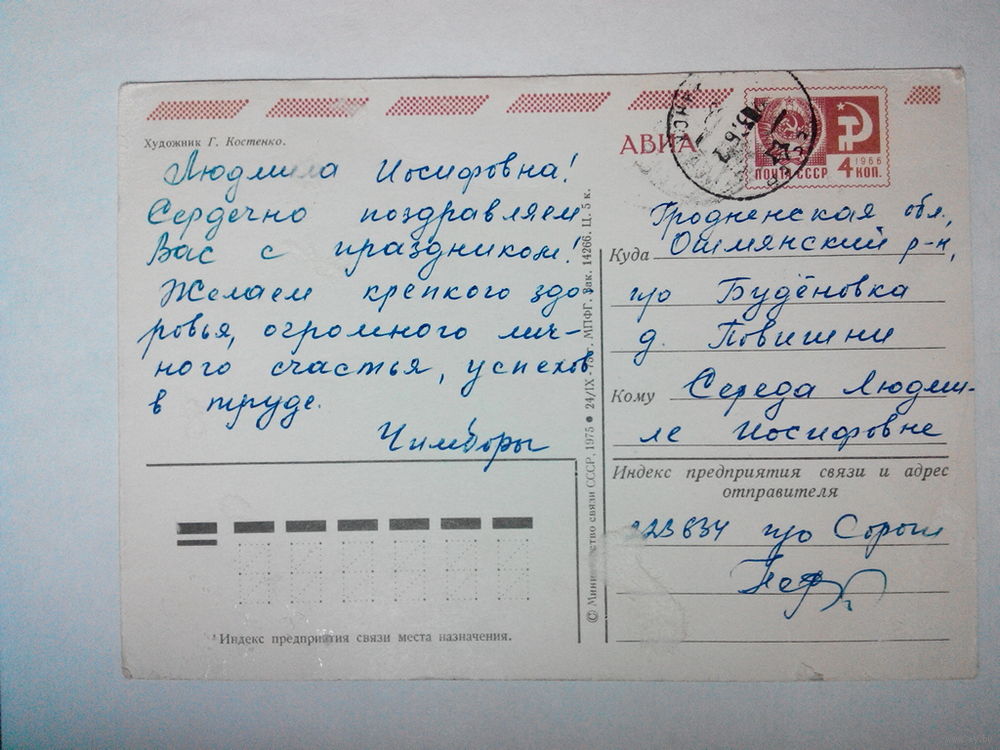 Художник Г. Костенко.
Людмила Иосифовна!
Сердечно поздравляем
Вас с праздником!
Желаем крепкого здо-
ровья, огромного лич-
ного счастья, успехов
в труде.
Чимборы
Индекс предприятия связи места назначения.
© Министерство связи СССР, 1975 ● 24/IX - 75 г. МПФГ. Зак. 14266. Ц. 5 к.
АВИА
ПОЧТА СССР
1966
4 КОП.
Гродненская обл.,
Ошмянский р-н,
Куда
п/о Будёновка
д. Повишни
Кому Середа Людми-
ле Иосифовне
Индекс предприятия связи и адрес
отправителя
п/о